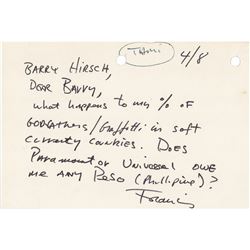 Tahoi
4/8
BARRY HIRSCH,
DEAR BARRY,
what happens to my % OF
GODFATHERS/Graffitti in soft
currenty counkies. Does
Paramount or Universal owe
me any Peso (Phillipine)?
Francis